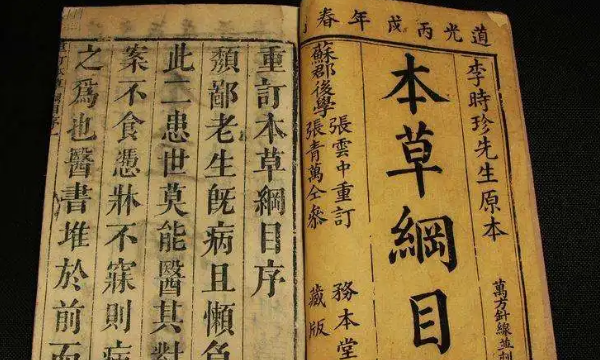 道光丙戌年春
李時珍先生原本
萬方針線並
本草綱目
蘇郡後學
張雲中重訂
張青萬仝參
務本堂
藏版
重訂本草綱目序
頹鄙老生旣病且懶負
此二患世莫能醫其對
案不食憑牀不寐則病
之爲也醫書堆於前而